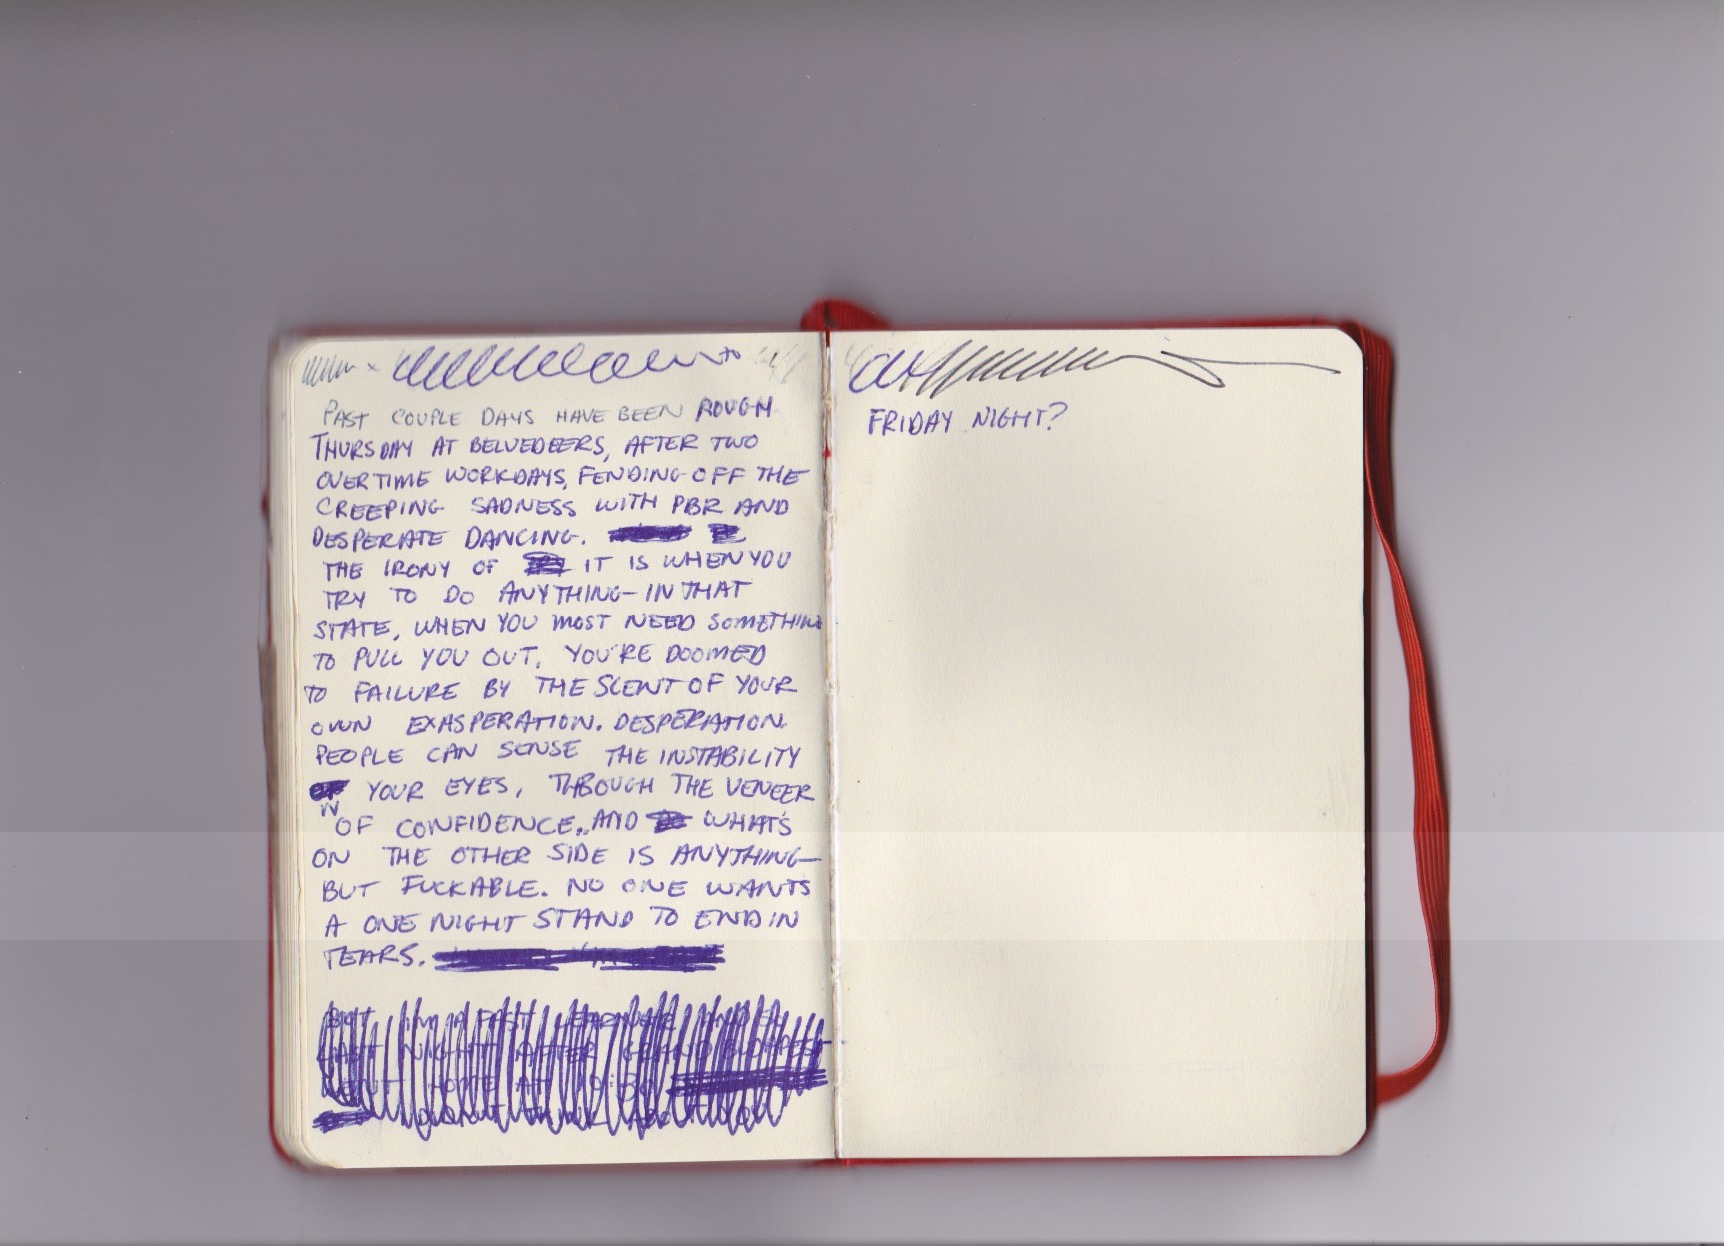 PAST COUPLE DAYS HAVE BEEN ROUGH
THURSDAY AT BELVEDEERS, AFTER TWO
OVERTIME WORKDAYS, FENDING OFF THE
CREEPING SADNESS WITH PBR AND
DESPERATE DANCING.
THE IRONY OF IT IS WHEN YOU
TRY TO DO ANYTHING- IN THAT
STATE, WHEN YOU MOST NEED SOMETHING
TO PULL YOU OUT, YOU'RE DOOMED
TO FAILURE BY THE SCENT OF YOUR
OWN EXASPERATION. DESPERATION
PEOPLE CAN SENSE THE INSTABILITY
IN YOUR EYES, THROUGH THE VENEER
OF CONFIDENCE.. AND WHAT'S
ON THE OTHER SIDE IS ANYTHING-
BUT FUCKABLE. NO ONE WANTS
A ONE NIGHT STAND TO END IN
TEARS.
BUT I'M A FAST LEARNER
LAST NIGHT AFTER
WENT HOME AT
FRIDAY NIGHT?